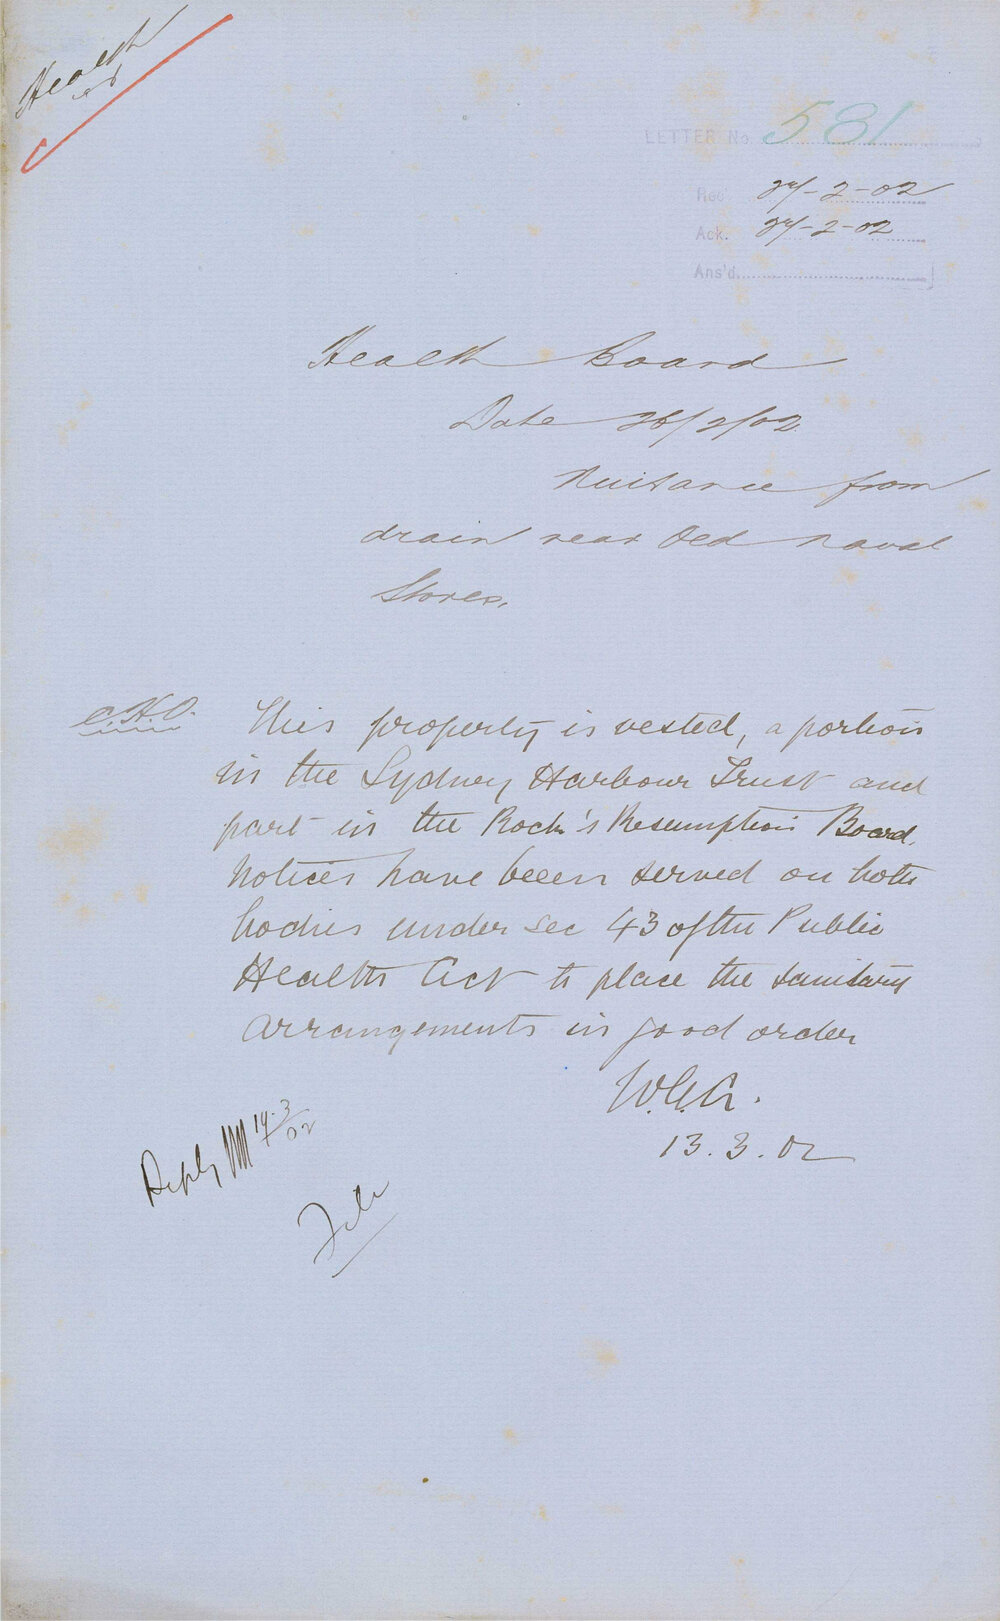 Health
LETTER No 581
Rec 27-2-02
Ack. 27-2-02
Ans'd
Health Board
Date 26/2/02
Nuisance from
drain near Old Naval
Stores.
C.H.O. This property is vested, a portion
in the Sydney Harbour Trust and
part in the Rock's Resumption Board.
Notices have been served on both
bodies under sec 43 of the Public
Health Act to place the sanitary
arrangements in good order
W.G.A.
13.3.02
Reply 14-3/02
File